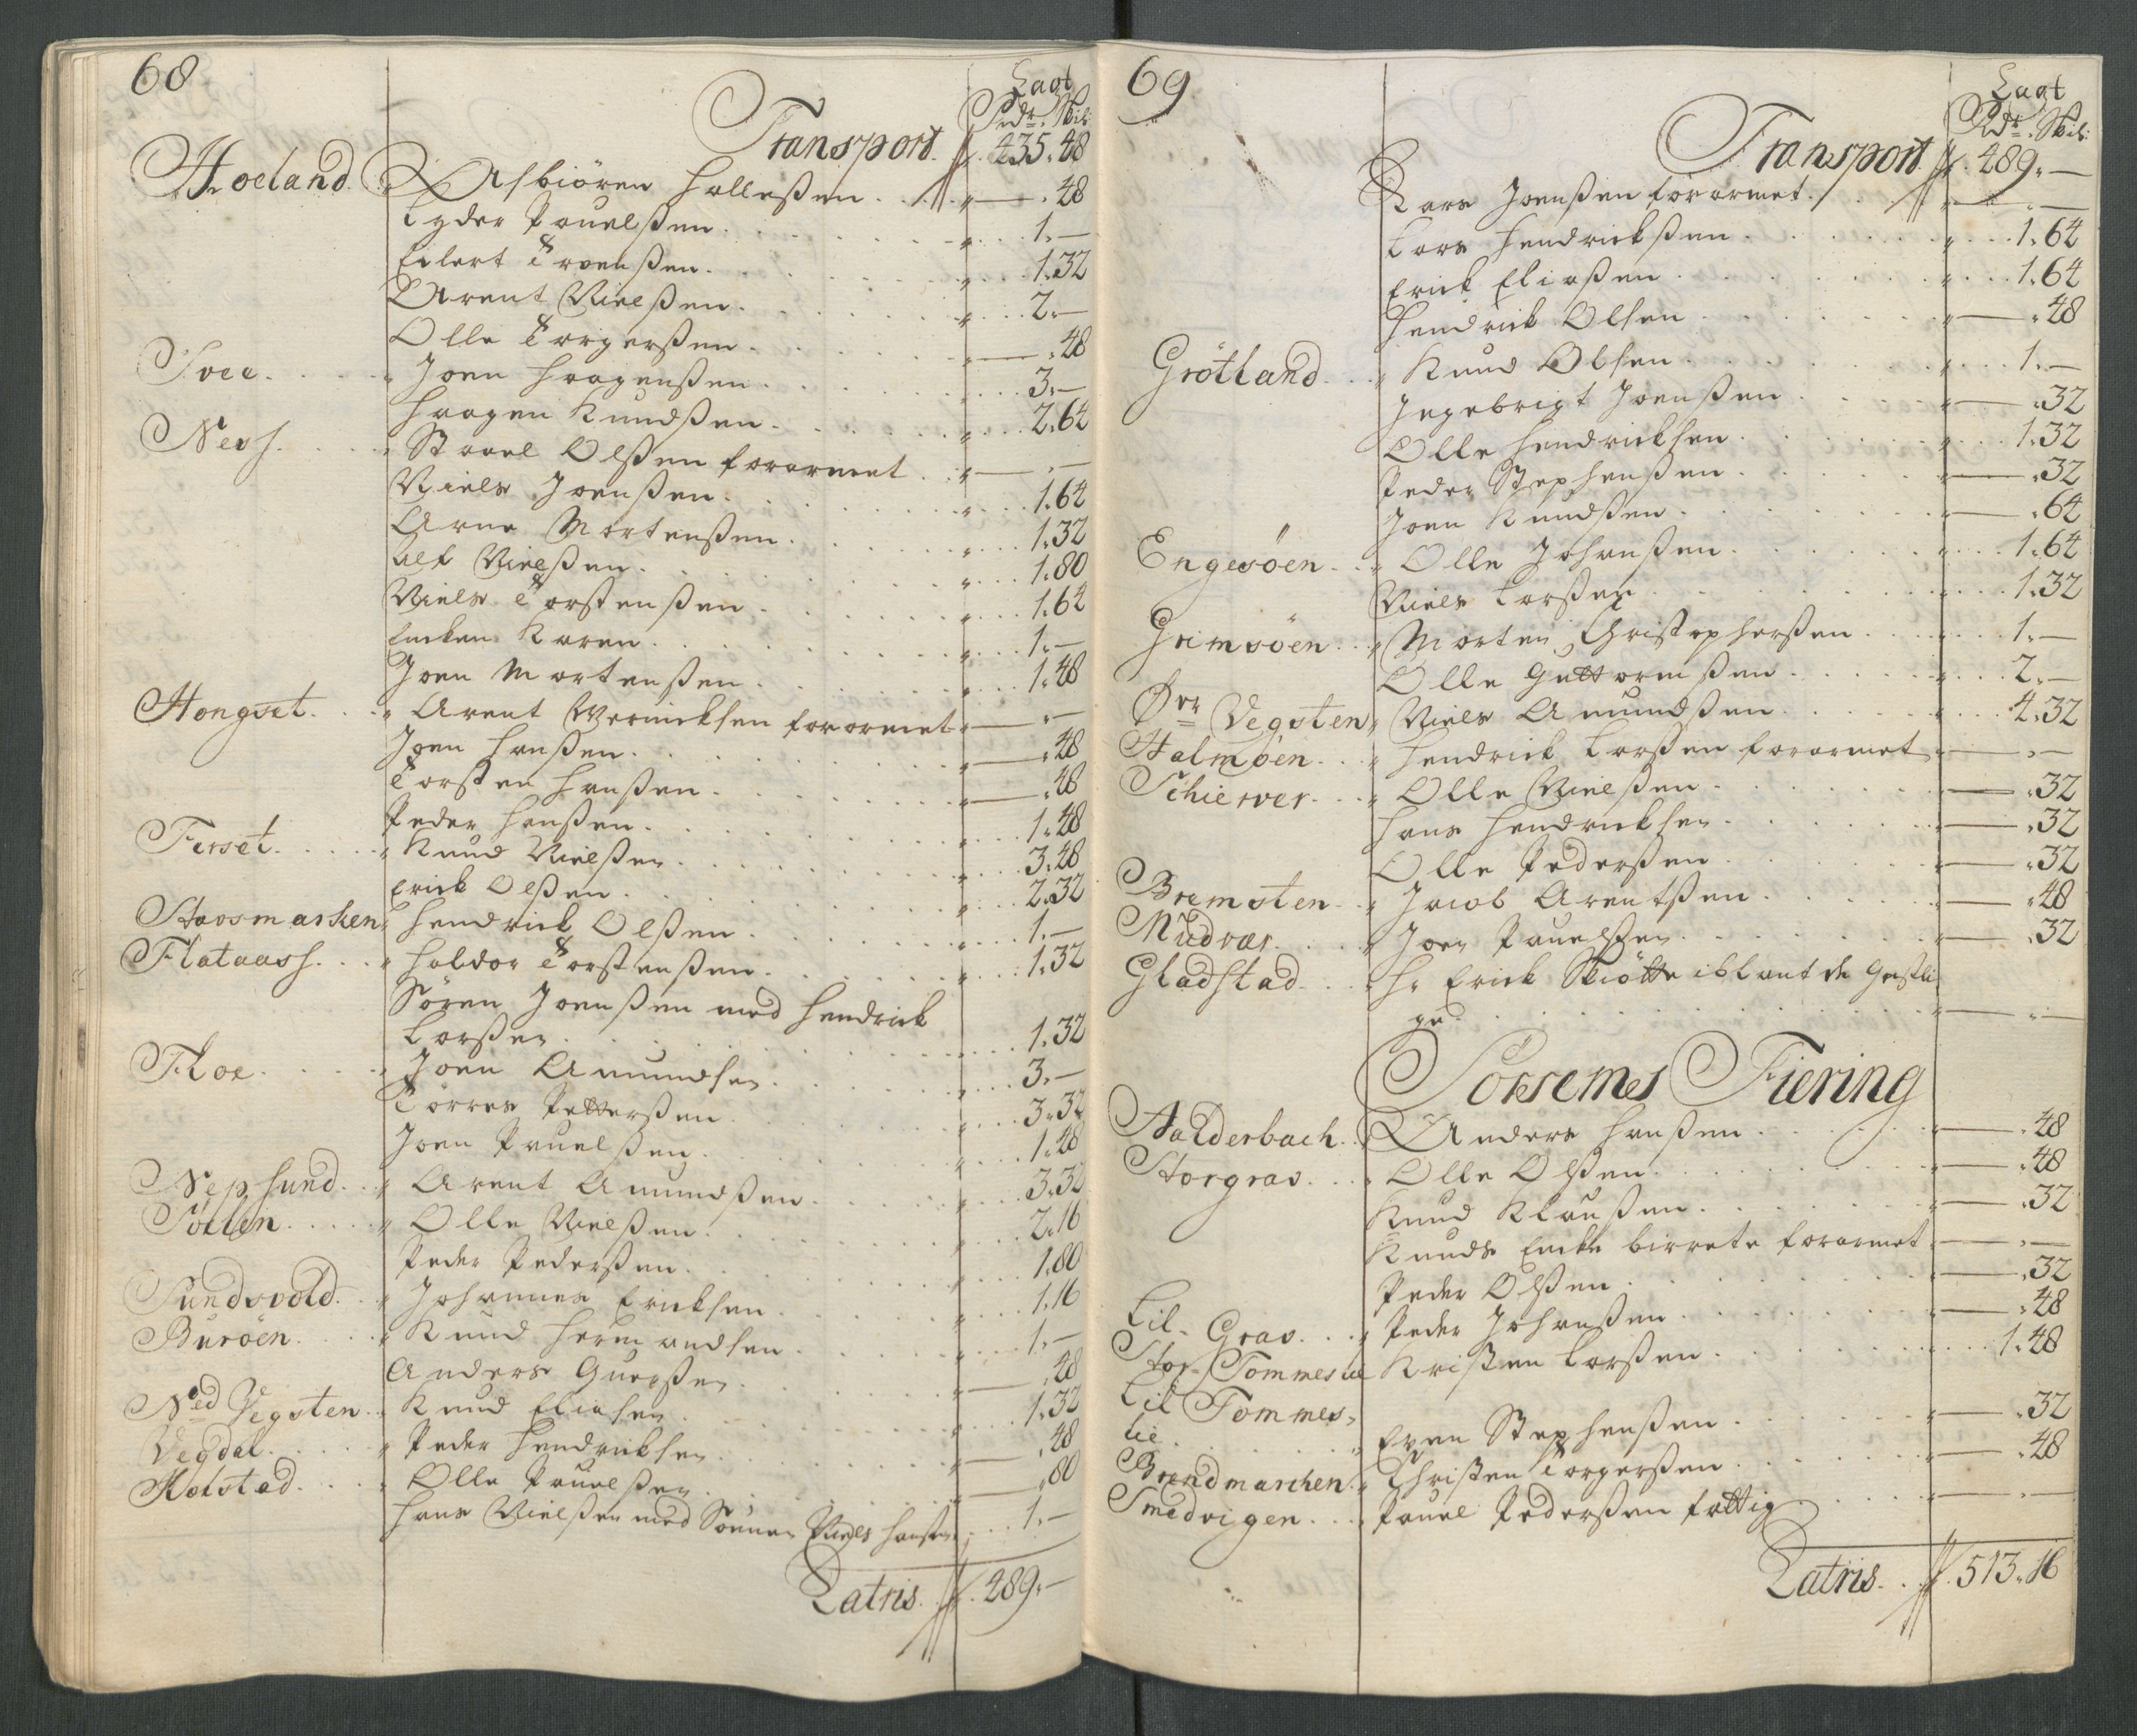 68
Lagt
Rdr. Skil:
Transport. 435.48
Hoeland. Asbiören Hallessen . . . 48
Lyder Pauelssen . . . 1.—
Eilert Tronssen . . . 1.32
Arent Nielssen . . . 2.—
Olle Torgerssen . . . 48
Svee. Joen Haagenssen . . . 3.—
Haagen Knudssen . . . 2.64
Ness. Staael Olssen forarmet . . —
Niels Joenssen . . . 1.64
Arne Mortenssen . . . 1.32
Lief Nielssen . . . 1.80
Niels Torstenssen . . . 1.64
Encken Karen . . . 1.—
Joen Mortenssen . . . 1.48
Hongset. Arent Wernicksen forarmet —
Joen Hanssen . . . 48
Torsten Hanssen . . . 48
Peder Hanssen . . . 1.48
Ferset. Knud Nielssen . . . 3.48
Erick Olssen . . . 2.32
Stavsmarken Hendrick Olssen . . . 1.—
Flataass. Haldor Torstenssen . . . 1.32
Sören Joenssen med Hendrick
Larssen . . . 1.32
Floe. Joen Amundsen . . . 3.—
Torres Petterssen . . . 3.32
Joen Pauelssen . . . 1.48
Nepsund. Arent Amundssen . . . 3.32
Sollen. Olle Nielssen . . . 2.16
Peder Pederssen . . . 1.80
Sundsvold. Johannes Ericksen . . . 1.16
Buröen. Knud Hermandsen . . . 1.—
Anders Guerssen . . . 48
Ned Vegsten. Knud Eliasen . . . 1.32
Vegdal. Peder Hendricksen . . . 48
Holstad. Olle Pauelssen . . . 80
Hans Nielssen med Sönnen Niels Hanssen . . 1.—
Latris. 489.—
69
Lagt
Rdr. Skil:
Transport. 489.—
Lars Joenssen forarmet . . . —
Lars Hendrickssen . . . 1.64
Erick Eliassen . . . 1.64
Hendrick Olsen . . . 48
Grötland. Knud Olsen . . . 1.—
Ingebrigt Joenssen . . . 32
Olle Hendricksen . . . 1.32
Peder Stephenssen . . . 32
Joen Knudssen . . . 64
Engesöen. Olle Johanssen . . . 1.64
Niels Larssen . . . 1.32
Grimsöen. Morten Christopherssen . . . 1.—
Olle Guttormssen . . . 2.—
Øvr Vegsten Niels Amundssen . . . 4.32
Halmöen. Hendrick Larssen forarmet . —
Schierver. Olle Nielssen . . . 32
Hans Hendricksen . . . 32
Olle Pederssen . . . 32
Bremsten. Jacob Arentssen . . . 48
Mudvær. Joen Pauelssen . . . 32
Gladstad. Hr Erick Skiötte iblant de Geistli
ge . . . —
Sorsemes Fiering
Halderbach. Anders Hanssen . . . 48
Storgrav. Olle Olssen . . . 48
Knud Klaussen . . . 32
Knuds Encke birrete forarmet . —
Peder Olssen . . . 32
Lil- Grav. Peder Johanssen . . . 48
Stor- Tommeslie Kristen Larssen . . . 1.48
Lil Tommes-
lie. Even Stephenssen . . . 32
Brendmarchen. Christen Torgerssen . . . 48
Smedvigen. Pauel Pederssen fattig . . . —
Latris. 513.16